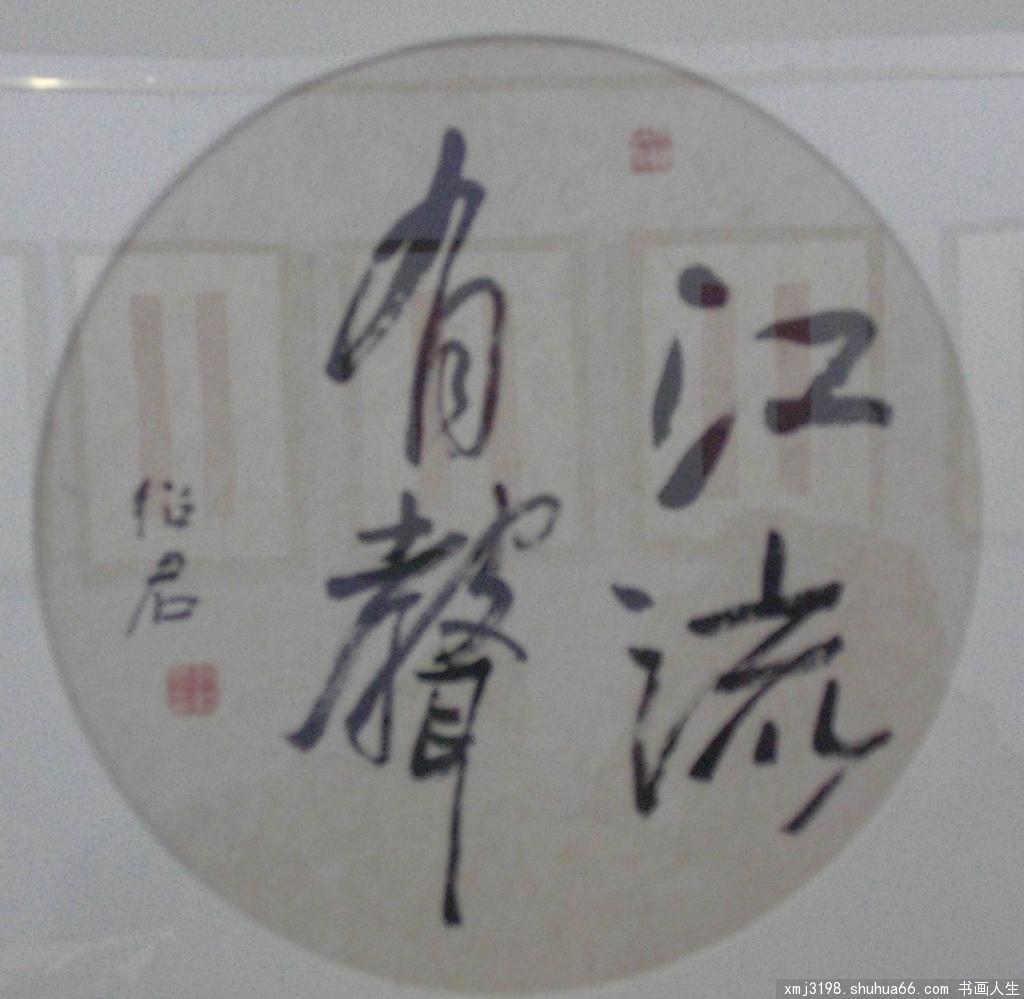 江流
有聲
俗君
xmj3198.shuhua66.com 书画人生